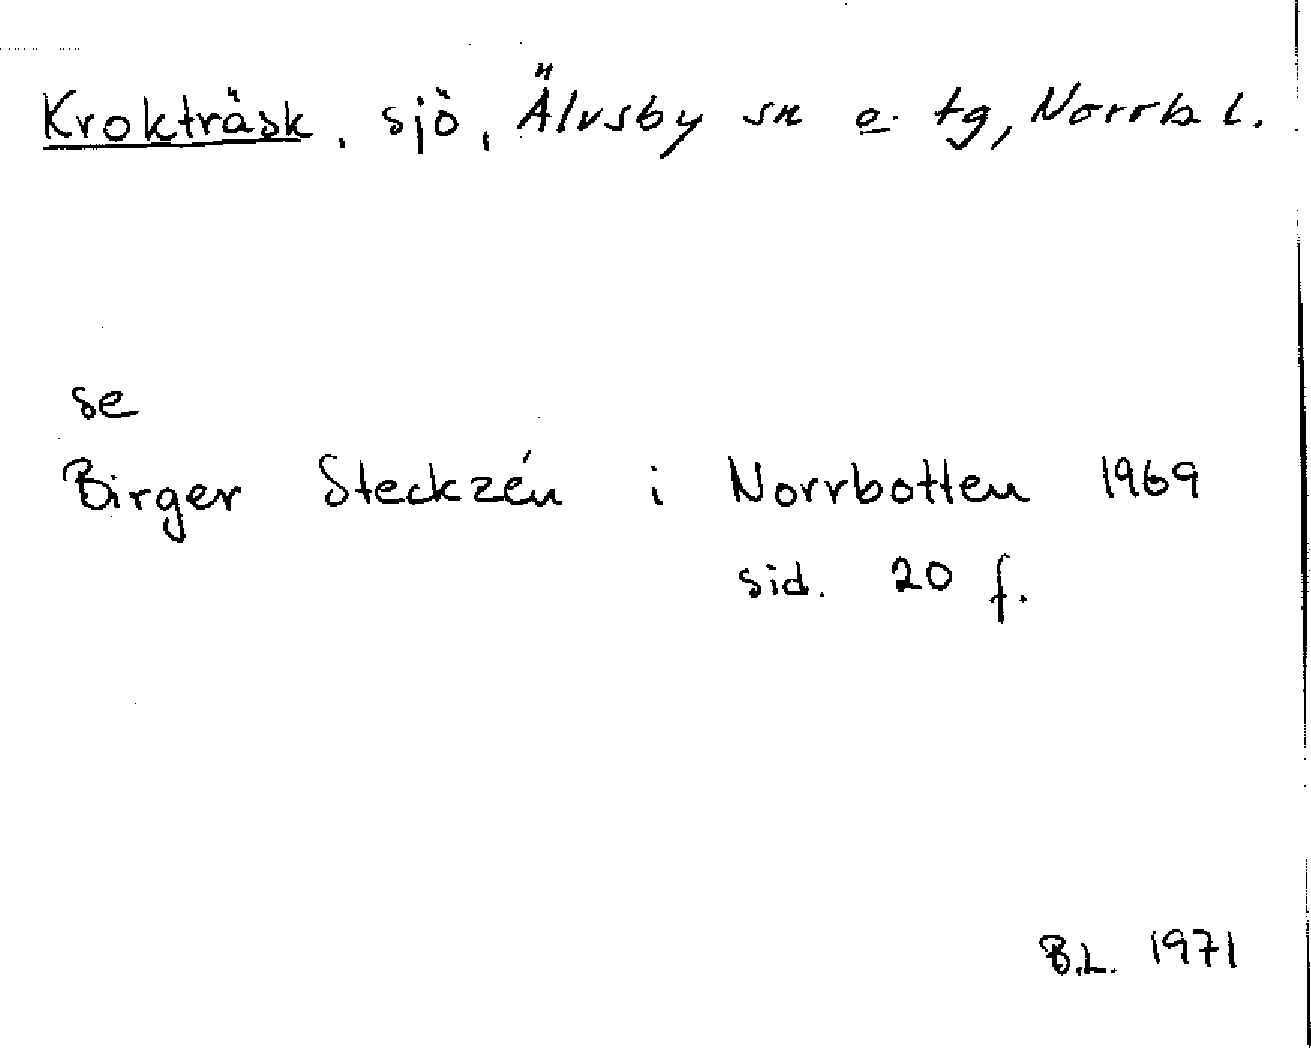 Krokträsk, sjö, Älvsby sn o. tg, Norrb. l.
se
Birger Steckzén i Norrbotten 1969
sid. 20 f.
B.L. 1971